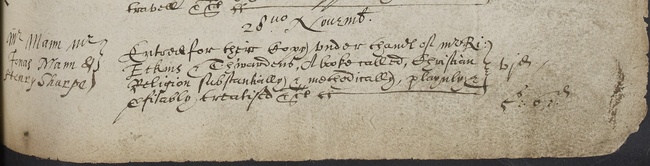 travell &c
28 uo Novemb.
Mr Mam Mr
Jonas Mam &
Henry Sharpe
Entred for their Copy vnder thandes of mr Ri:
Etkins & Thwardens, A booke called, Christian
Religion substantially & methodically, playnly &
& fitably treatised &c
vj d